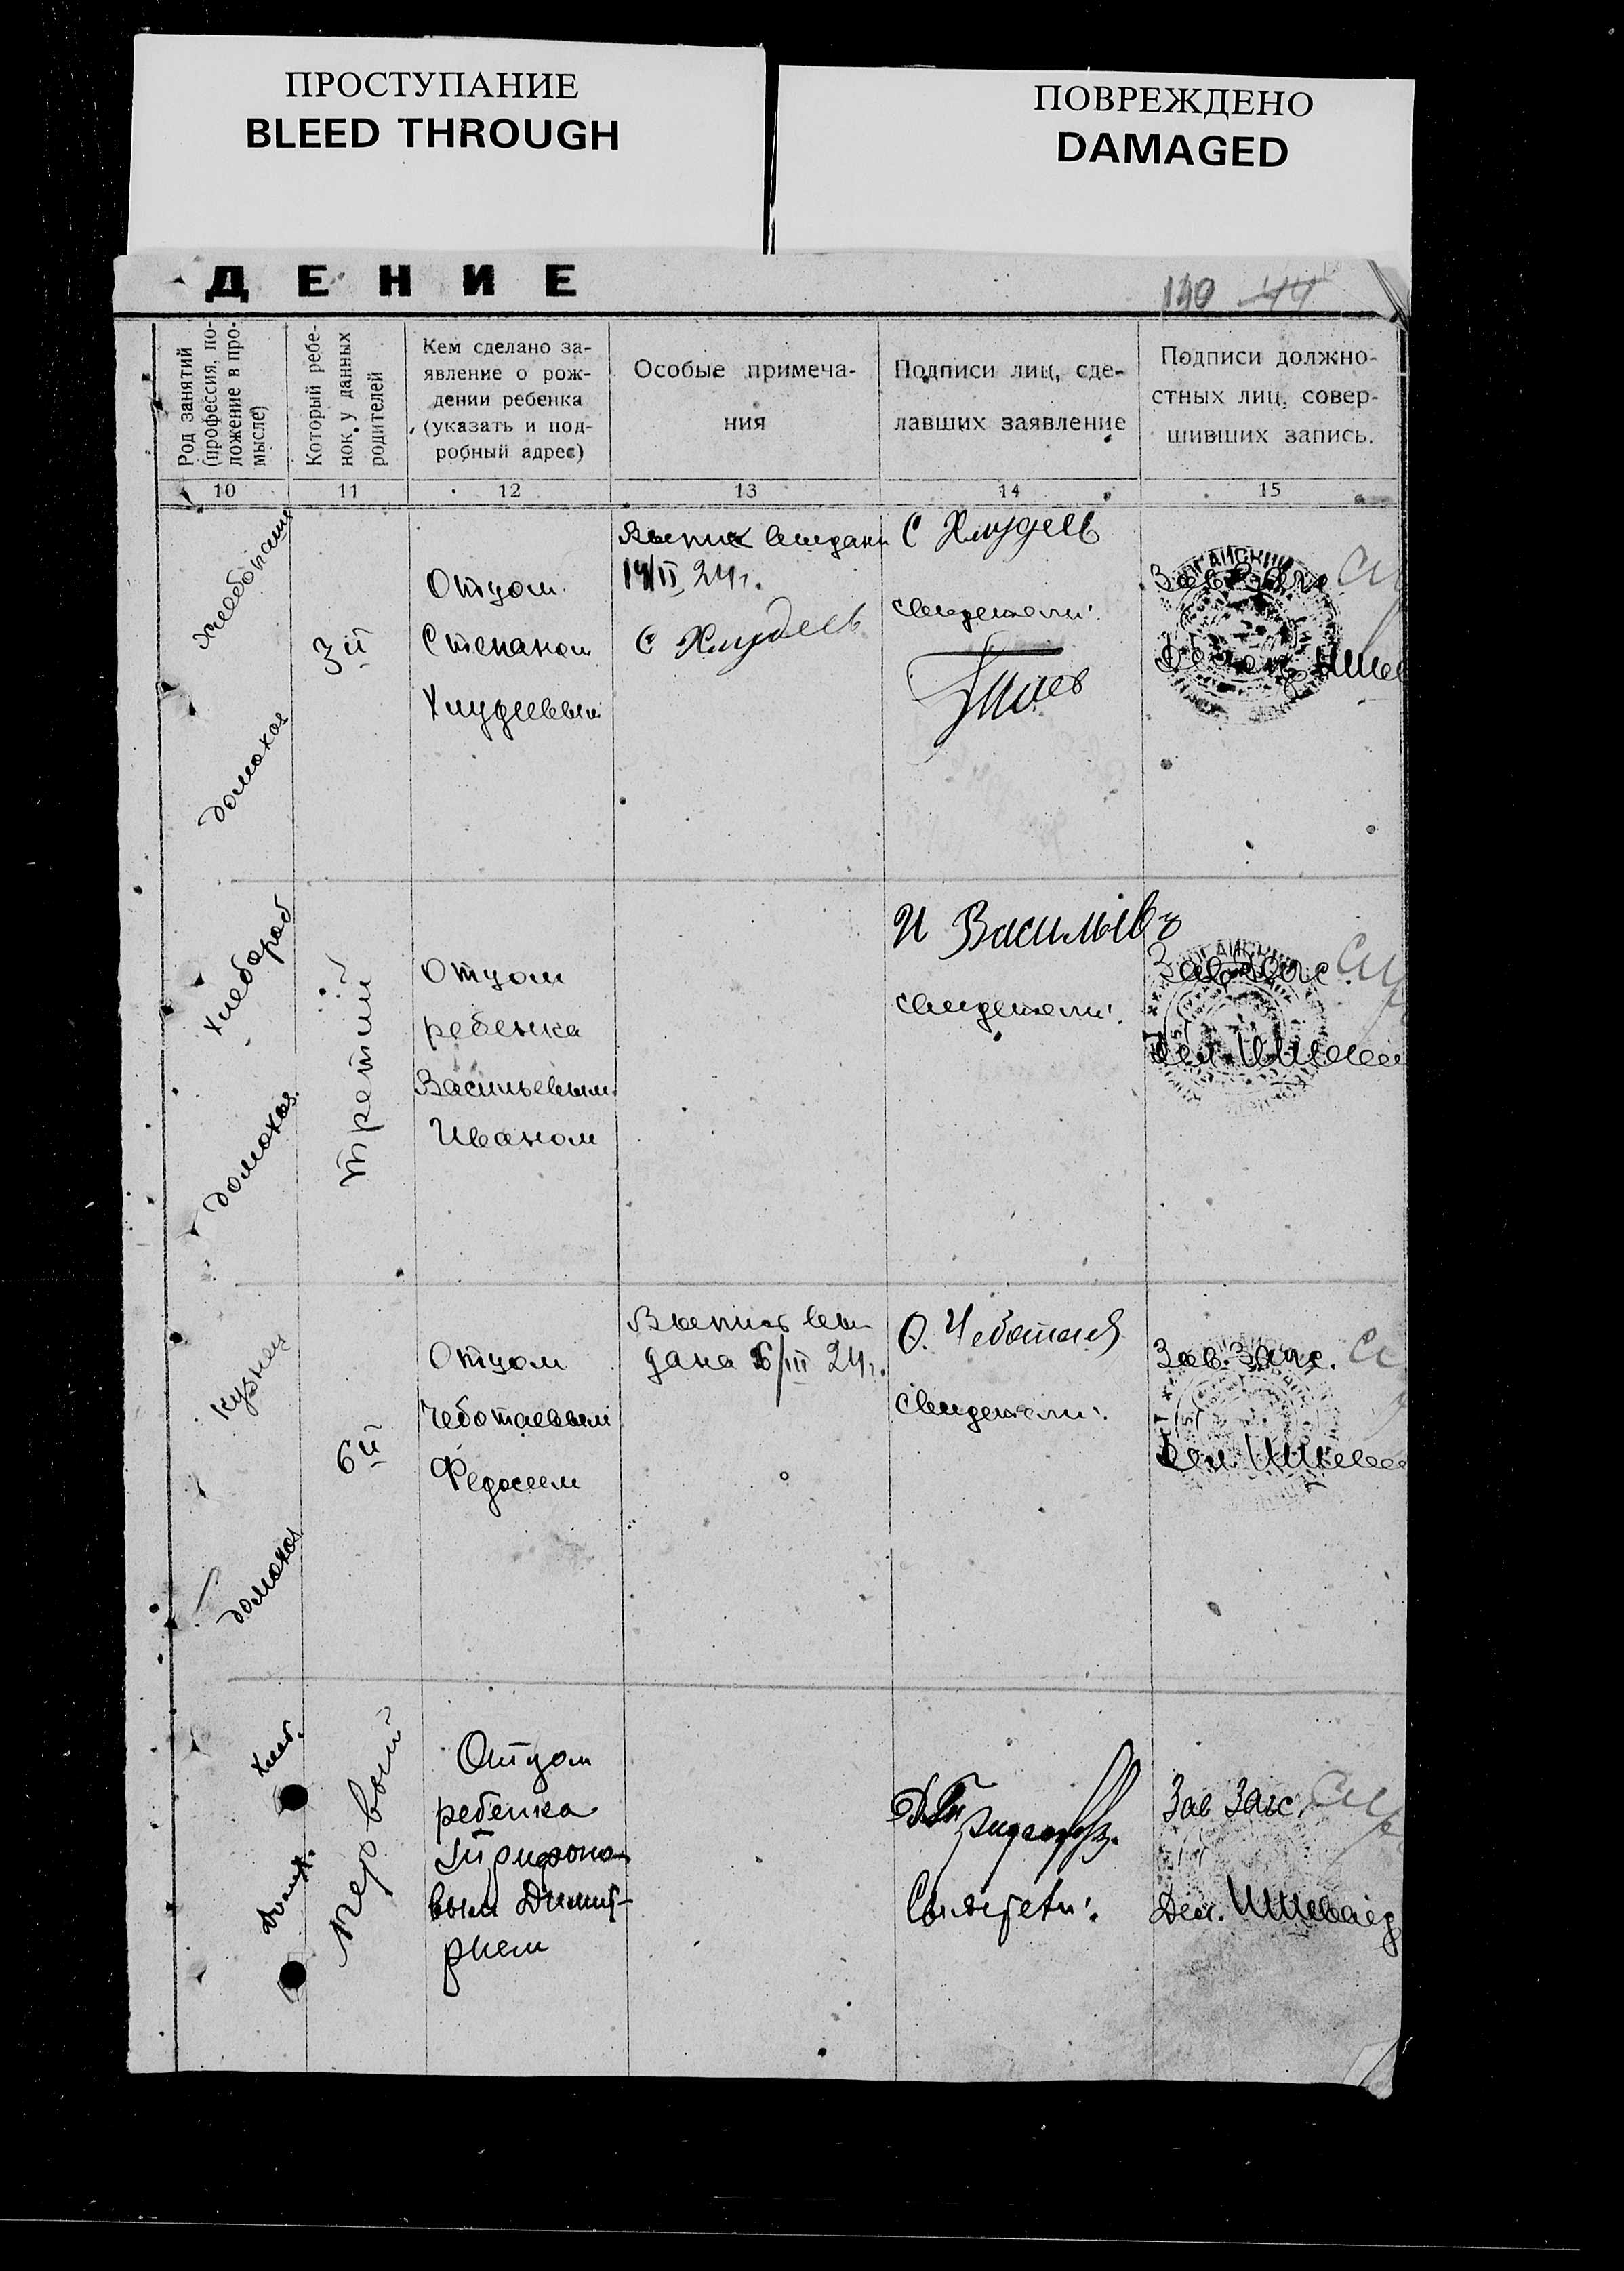 ПРОСТУПАНИЕ
BLEED THROUGH
ПОВРЕЖДЕНО
DAMAGED
ДЕНИЕ
130 44
Род занятий
(профессия, по-
ложение в про-
мысле)
Который ребе-
нок у данных
родителей
Кем сделано за-
явление о рож-
дении ребенка
(указать и под-
робный адрес)
Особые примеча-
ния
Подписи лиц, сде-
лавших заявление
Подписи должно-
стных лиц, совер-
шивших запись.
10
11
12
13
14
15
хлебопаш
домохоз
3й
Отцом
Степаном
Хлудеевым
14/II 24 г.
С Хлудеев
С Хлудеев
свидетели:
Зав Загс
Хлебороб
домохоз
третий
Отцом
ребенка
Васильевым
Иваном
И Васильев
свидетели:
Зав Загс
Дел.
кузнец
домохоз
6й
Отцом
Чеботаевым
Федосеем
дана 6/III 24 г.
Ф. Чеботаев
свидетели:
Зав. Загс.
Дел.
Хлеб.
Домх.
первый
Отцом
ребенка
Трифоно-
вым Димит-
рием
Свидетели:
Зав Загс.
Дел.